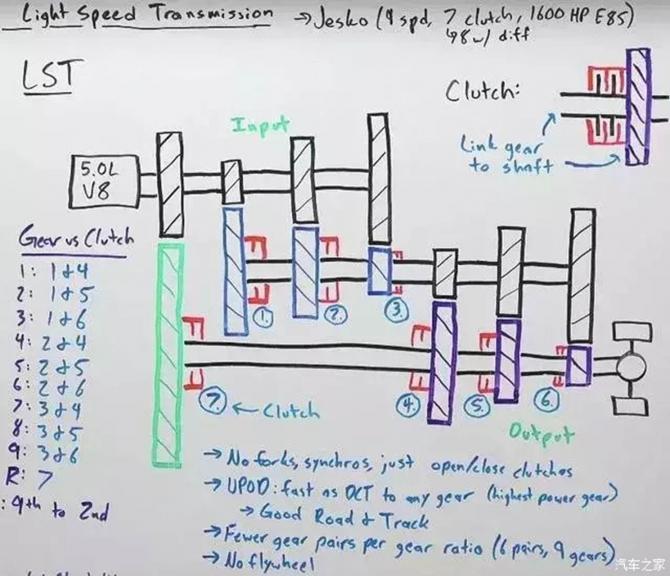 Light Speed Transmission → Jesko (9 spd, 7 clutch, 1600 HP E85)
w/ diff
LST
Clutch:
Input
Link gear
to shaft
5.0L
V8
Gear vs Clutch
1: 1 & 4
2: 1 & 5
3: 1 & 6
4: 2 & 4
5: 2 & 5
6: 2 & 6
7: 3 & 4
8: 3 & 5
9: 3 & 6
R: 7
: 9th to 2nd
1.
2.
3.
7. ← Clutch
4.
5.
6.
Output
→ No forks, synchros, just open/close clutches
→ UPOD: fast as DCT to any gear (highest power gear)
→ Good Road & Track
→ Fewer gear pairs per gear ratio (6 pairs, 9 gears)
→ No flywheel
汽车之家